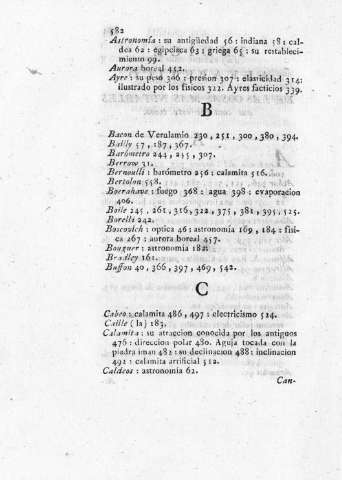 582
Astronomía : su antigüedad 56 : indiana 58 : cal-
dea 62 : egipciaca 63 : griega 65 : su restableci-
miento 99.
Aurora boreal 452.
Ayre : su peso 306 : presion 307 : elasticidad 314:
ilustrado por los físicos 322. Ayres facticios 339.
B
Bacon de Verulamio 230, 251, 300, 380, 394.
Bailly 57, 187, 367.
Barómetro 244, 255, 307.
Berrow 31.
Bernoulli : barómetro 256 : calamita 516.
Bertolon 558.
Boerahave : fuego 368 : agua 398 : evaporacion
406.
Boile 245, 261, 316, 322, 375, 381, 395, 525.
Borelli 242.
Boscovich : optica 46 : astronomía 169, 184 : físi-
ca 267 : aurora boreal 457.
Bouguer : astronomía 182.
Bradley 161.
Buffon 40, 366, 397, 469, 542.
C
Cabeo : calamita 486, 497 : electricismo 524.
Caille (la) 183.
Calamita : su atraccion conocida por los antiguos
476 : direccion polar 480. Aguja tocada con la
piedra iman 482 : su declinacion 488 : inclinacion
492 : calamita artificial 512.
Caldeos : astronomía 62.
Can-